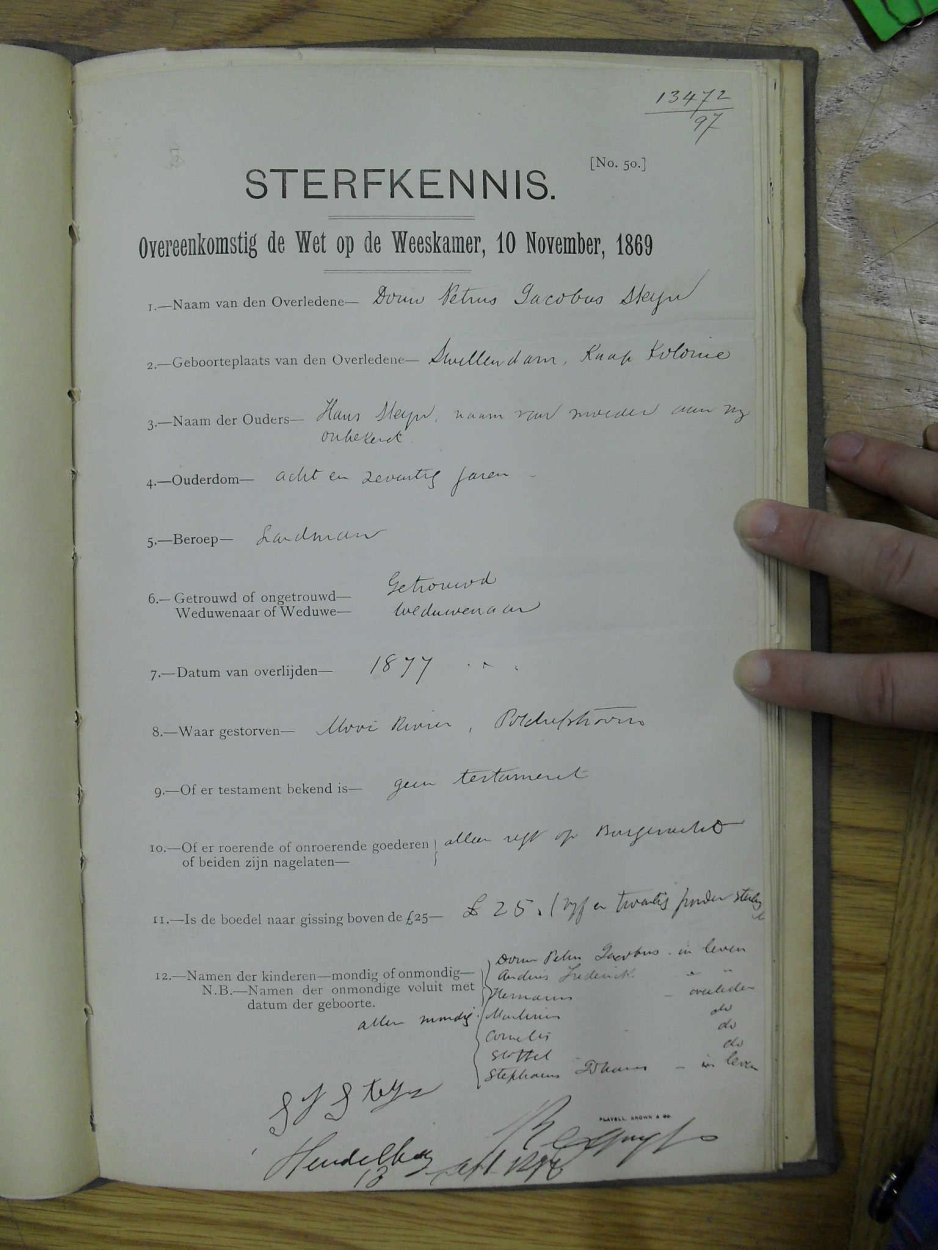 13472
97
[No. 50.]
STERFKENNIS.
Overeenkomstig de Wet op de Weeskamer, 10 November, 1869
1.—Naam van den Overledene— Douw Petrus Jacobus Steyn
2.—Geboorteplaats van den Overledene— Swellendam, Kaap Kolonie
3.—Naam der Ouders— Hans Steyn, naam van moeder aan my
onbekend
4.—Ouderdom— acht en zeventig jaren
5.—Beroep— Landman
6.—Getrouwd of ongetrouwd— Getrouwd
Weduwenaar of Weduwe— Weduwenaar
7.—Datum van overlijden— 1877
8.—Waar gestorven— Mooi Rivier, Potchefstroom
9.—Of er testament bekend is— geen testament
10.—Of er roerende of onroerende goederen alleen regt op Burgerrecht
of beiden zijn nagelaten—
11.—Is de boedel naar gissing boven de £25— £25. (vyf en twintig ponden
12.—Namen der kinderen—mondig of onmondig— Douw Petrus Jacobus - in leven
N.B.—Namen der onmondige voluit met Andries Frederick " "
datum der geboorte. Hermanus - overleden
allen mondig Marthinus do
Cornelis do
Stoffel do
Stephanus Johannes - in leven
Steyn
PLAYELL, BROWN & Co.
Heidelberg
13